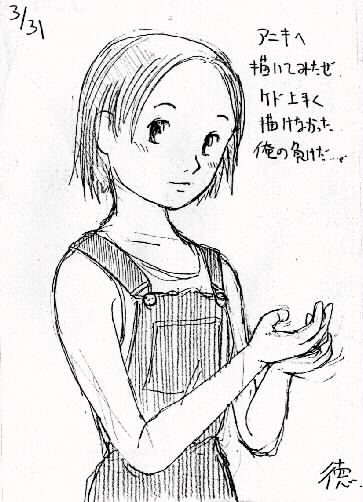 3/31
アニキへ
描いてみたぜ
ケド上手く
描けなかった
俺の負けだ…。
徳